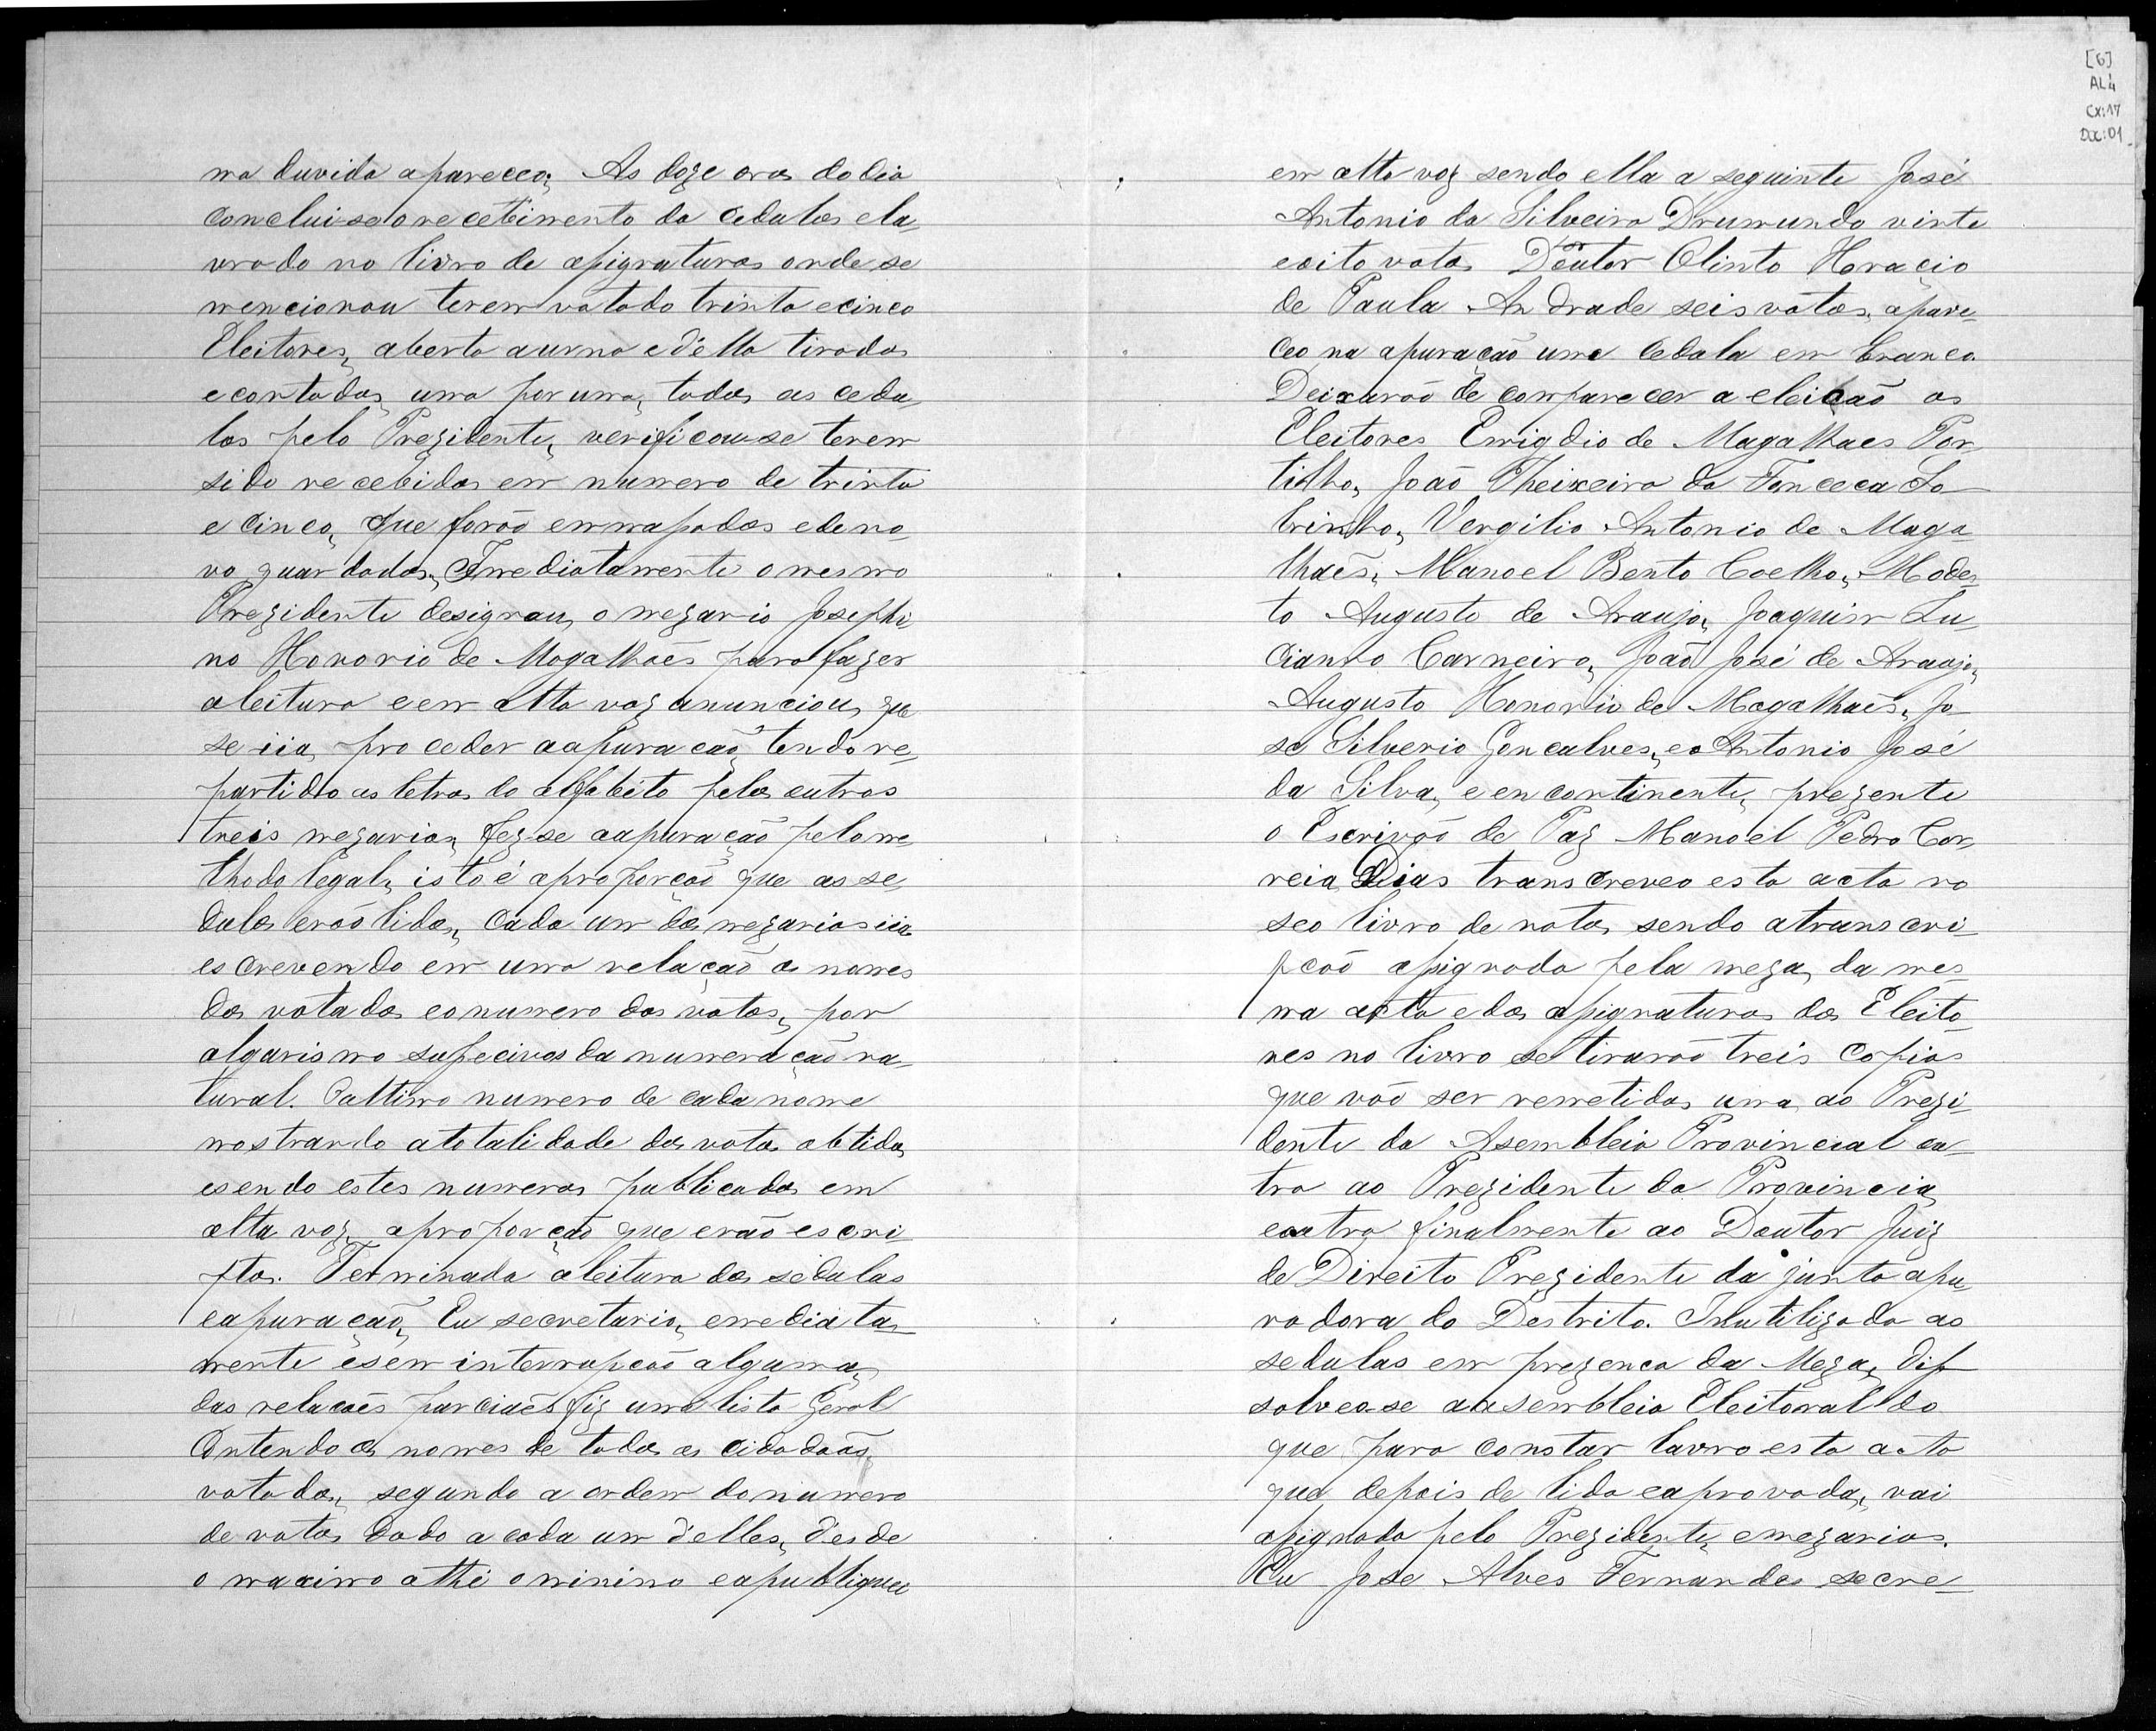 [6]
AL4
CX:17
DOC:01
ma duvida appareceo; As doze oras do dia
concluise o recebimento da cedulas ela,
vrado no livro de assignaturas onde se
mencionou terem votado trinta e cinco
Eleitores, aberta a urna e d'ella tirados
e contados, uma por uma, todas as cedu,
las pelo Prezidente, verificou-se terem
sido recebidas em numero de trinta
e cinco, que forão emmaçadas e de no,
vo guardadas, Immediatamente o mesmo
Prezidente designou, o mezario Josephi,
no Honorio de Magalhaẽs para fazer
a leitura e em alta voz anunciou, que
se iia, proceder a apuração, tendo re,
partido as letras do alfabeito pelos outros
treis mezarios, fez-se a apuração pelo me,
thodo legal, isto é a proporção que as se,
dulas erão lidas, cada um dos mezarios iia
escrevendo em uma relação os nomes
dos votados e o numero dos votos, por
algarismo supecivos da numeração na,
tural. O ultimo numero de cada nome
mostrando a totalidade dos votos obtidos
e sendo estes numeros publicados em
alta voz, a proporção que erão escri,
ptos. Terminada a leitura das sedulas
e apuração, Eu secretario, emediata,
mente e sem interrupção alguma,
das relações parciaẽs fiz uma lista Geral
Contendo os nomes de todos os cidadãos,
votados, segundo a ordem do numero
de votos dado a cada um d'elles, desde
o maximo athé o minimo e a publiquei
em alta voz sendo ella a seguinte José
Antonio da Silveira Drumundo vinte
e oito votos Doutor Olinto Horacio
de Paula Andrade seis votos, apare,
ceo na apuração uma cedola em branco.
Deixarão de comparecer a eleição os
Eleitores Emigdio de Magalhaes Por,
tilho, João Theixeira da Fonceca So
brinho, Vergilio Antonio de Maga
lhaẽs, Manoel Bento Coelho, Modes,
to Augusto de Araujo, Joaquim Lu,
cianno Carneiro, João José de Araujo,
Augusto Honorio de Magalhaẽs, Jo
se Silverio Goncalves, e o Antonio José
da Silva, e encontinente, prezente
o Escrivão de Paz Manoel Pedro Cor,
reia Dias transcreveo esta acta no
seo livro de notas, sendo a transcri
pção assignada pela meza, da mes
ma acta e das assignaturas dos Eleito
res no livro se tirarão treis copias
que vão ser remetidas, uma, ao Prezi
dente da Asembleia Provincial ou
tra ao Prezidente da Provincia,
e outra finalmente ao Doutor Juiz
de Direito Prezidente da junta apu,
radora do Destrito. Inutilizada as
sedulas em prezenca da Meza, dis
solveo-se a asembleia Eleitoral do
que para constar lavro esta acta
que depois de lida e aprovada, vai
assignada pelo Prezidente, e mezarios.
Eu Jose Alves Fernandes secre